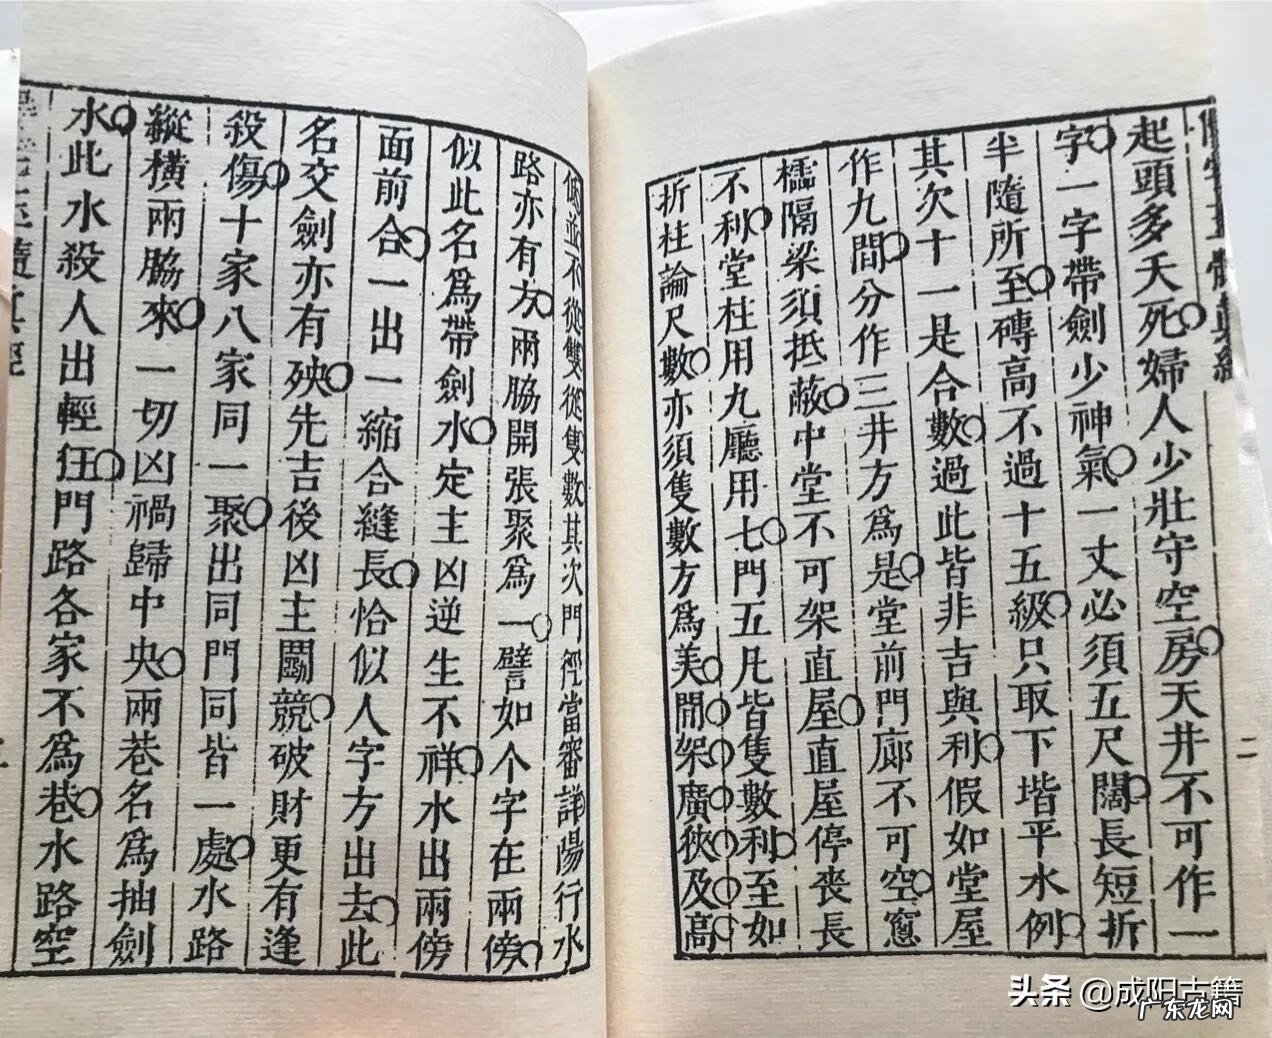 二
起頭多夭死婦人少壯守空房天井不可作一
字一字帶劍少神氣一丈必須五尺闊長短折
半隨所至磚高不過十五級只取下堦平水例
其次十一是合數過此皆非吉與利假如堂屋
作九間分作三井方為是堂前門廊不可空窻
欞隔梁須抵蔽中堂不可架直屋直屋停喪長
不利堂柱用九廳用七門五凡皆隻數利至如
折柱論尺數亦須隻數方為美間架廣狹及高
低並不從雙從隻數其次門徑當審詳陽行水
路亦有方兩脇開張聚為一譬如个字在兩傍
似此名為帶劍水定主凶逆生不祥水出兩傍
面前合一出一縮合縫長恰似人字方出去此
名交劍亦有殃先吉後凶主鬭競破財更有逢
殺傷十家八家同一聚出同門同皆一處水路
縱橫兩脇來一切凶禍歸中央兩巷名為抽劍
水此水殺人出輕狂門路各家不為巷水路空
頭条 @成阳古籍
广东龙网